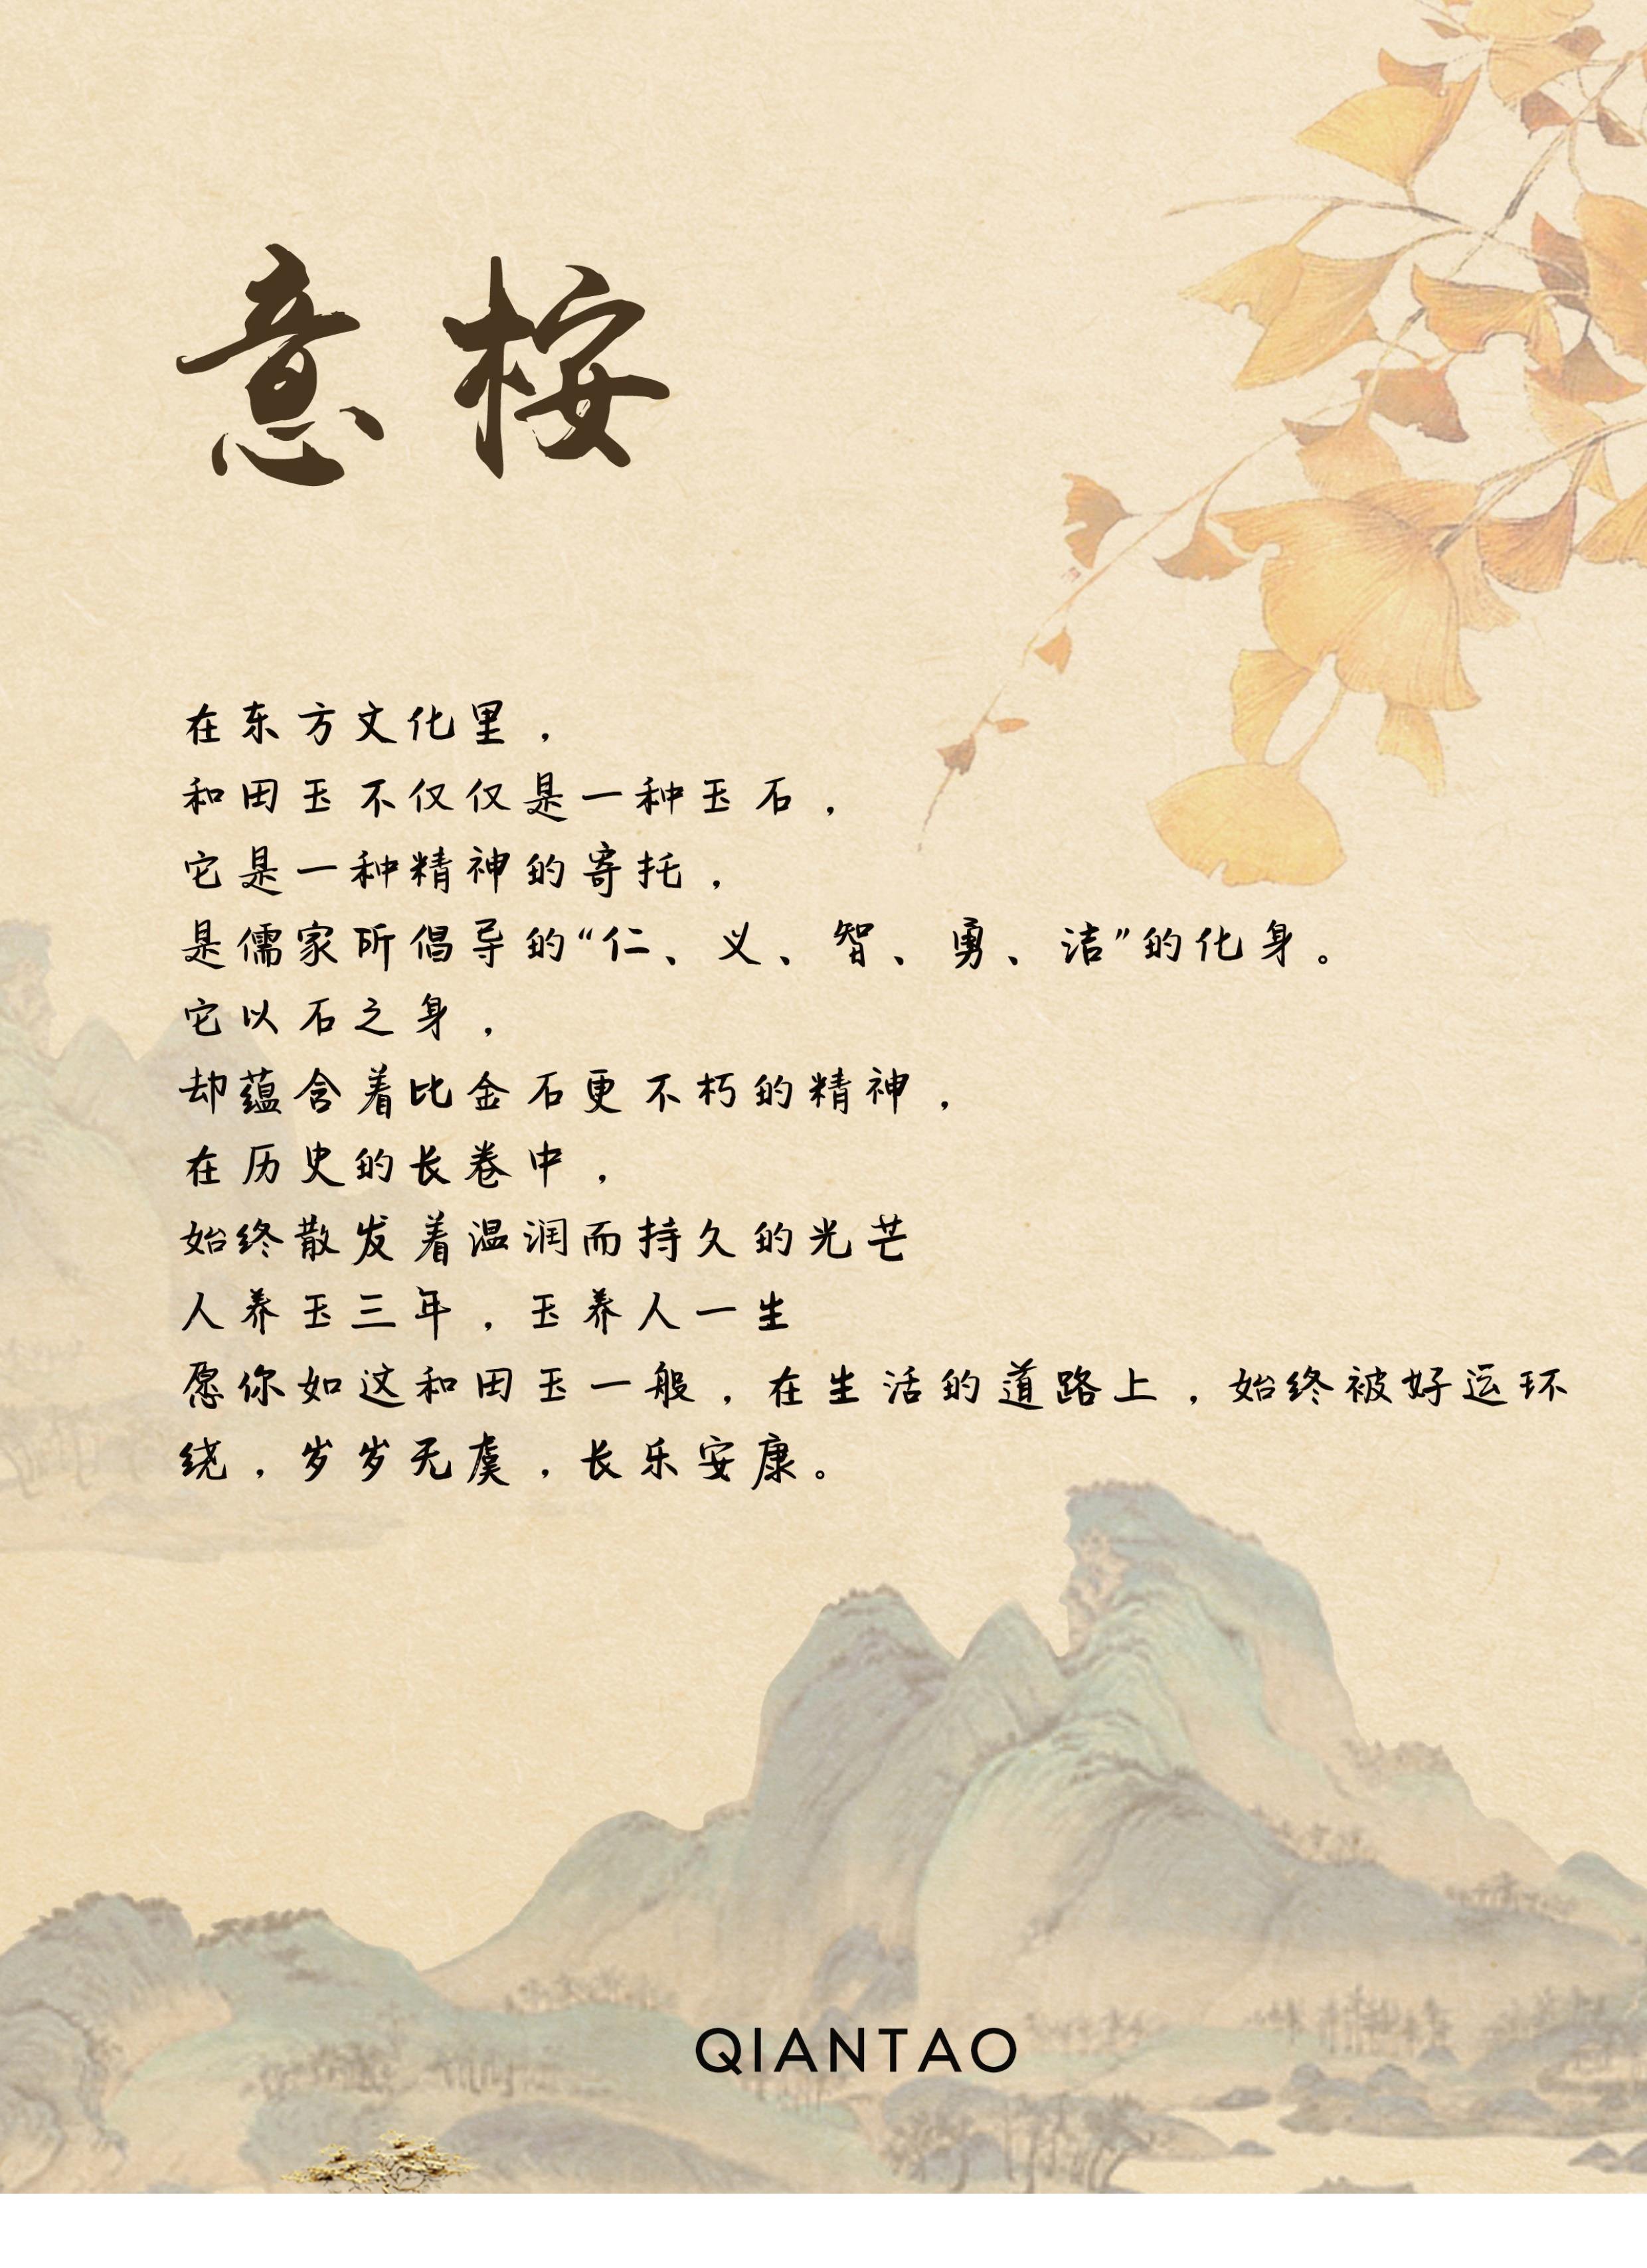 意桉
在东方文化里，
和田玉不仅仅是一种玉石，
它是一种精神的寄托，
是儒家所倡导的“仁、义、智、勇、洁”的化身。
它以石之身，
却蕴含着比金石更不朽的精神，
在历史的长卷中，
始终散发着温润而持久的光芒
人养玉三年，玉养人一生
愿你如这和田玉一般，在生活的道路上，始终被好运环
绕，岁岁无虞，长乐安康。
QIANTAO